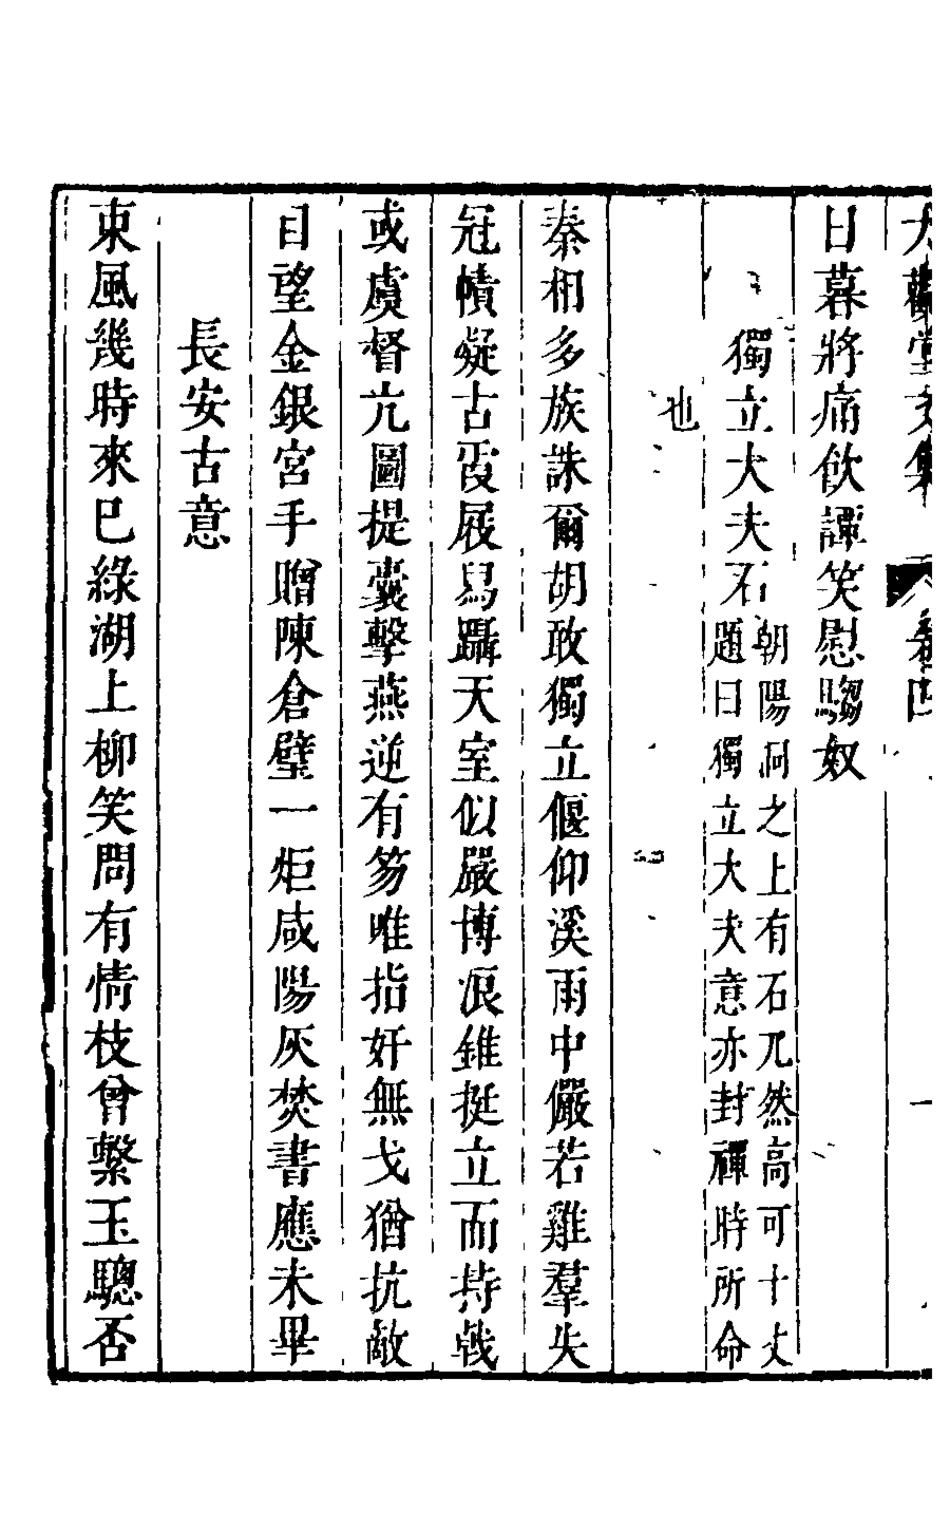 日暮將痛飲譚笑慰騶奴
獨立大夫石
朝陽洞之上有石兀然高可十丈
題曰獨立大夫意亦封禪時所命
也
秦相多族誅爾胡敢獨立偃仰溪雨中儼若雞羣失
冠幘凝古霞屐舄躡天室似嚴博浪錐挺立而持戟
或虞督亢圖提囊擊燕逆有笏唯指奸無戈猶抗敵
目望金銀宮手贈陳倉璧一炬咸陽灰焚書應未畢
長安古意
東風幾時來巳綠湖上柳笑問有情枝曾繫玉驄否